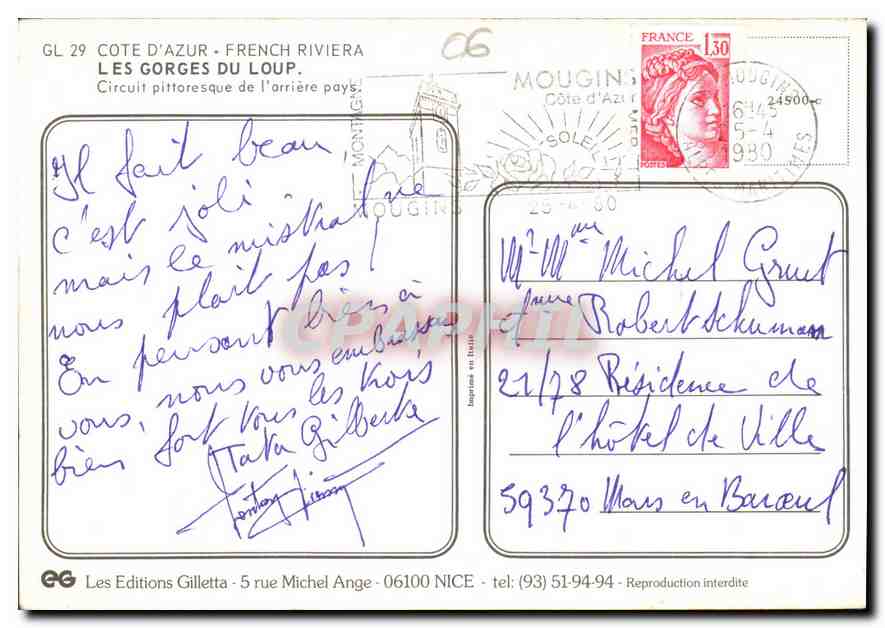 GL 29 COTE D'AZUR - FRENCH RIVIERA
LES GORGES DU LOUP.
Circuit pittoresque de l'arrière pays.
06
MONTAGNE
MOUGINS
Côte d'Azur
SOLEIL
MER
MOUGINS
25-4-80
FRANCE 1,30
POSTES
MOUGINS
16H45
5-4
1980
MARITIMES
24500-c
Il fait beau
c'est joli
mais le mistral ne
nous plait pas!
En pensant bien à
vous, nous vous embrassons
bien fort tous les trois
Tata Gilberte
Tonton
Imprimé en Italie
CPARPHIL
Mr Mme Michel Gruet
Robert Schuman
21/78 Résidence de
l'hôtel de Ville
59370 Mons en Baroeul
EG Les Editions Gilletta - 5 rue Michel Ange - 06100 NICE - tel: (93) 51-94-94 - Reproduction interdite